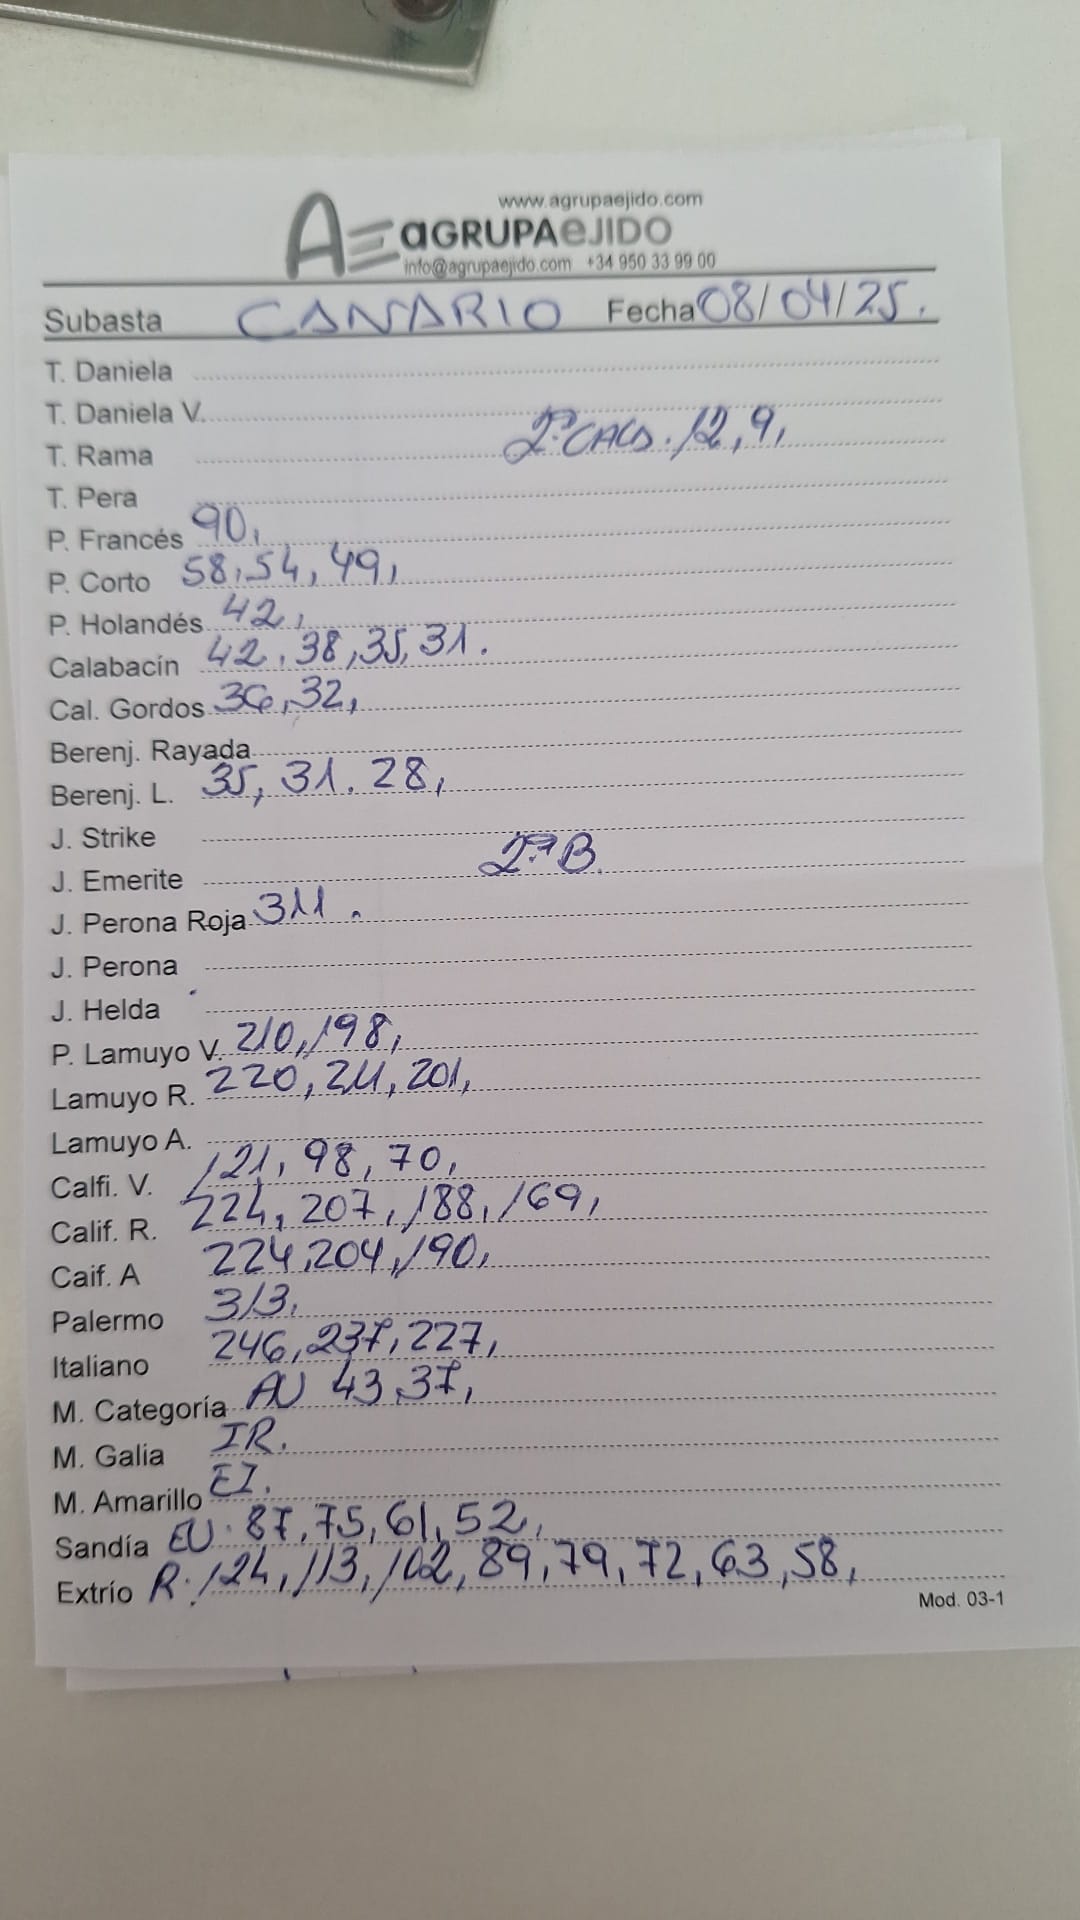 www.agrupaejido.com
AE aGRUPAeJIDO
info@agrupaejido.com +34 950 33 99 00
Subasta CANARIO Fecha 08/04/25.
T. Daniela
T. Daniela V.
T. Rama 2ª CALS. 12, 9,
T. Pera
P. Francés 90,
P. Corto 58, 54, 49,
P. Holandés 42,
Calabacín 42, 38, 35, 31.
Cal. Gordos 36, 32,
Berenj. Rayada
Berenj. L. 35, 31. 28,
J. Strike
J. Emerite 2ª B.
J. Perona Roja 311.
J. Perona
J. Helda
P. Lamuyo V. 210, 198,
Lamuyo R. 220, 211, 201,
Lamuyo A.
Calfi. V. 121, 98, 70,
Calif. R. 224, 207, 188, 169,
Caif. A 224, 204, 190,
Palermo 313,
Italiano 246, 237, 227,
M. Categoría AU 43, 37,
M. Galia IR.
M. Amarillo EI.
Sandía EU. 87, 75, 61, 52,
Extrío R. 124, 113, 102, 89, 79, 72, 63, 58,
Mod. 03-1